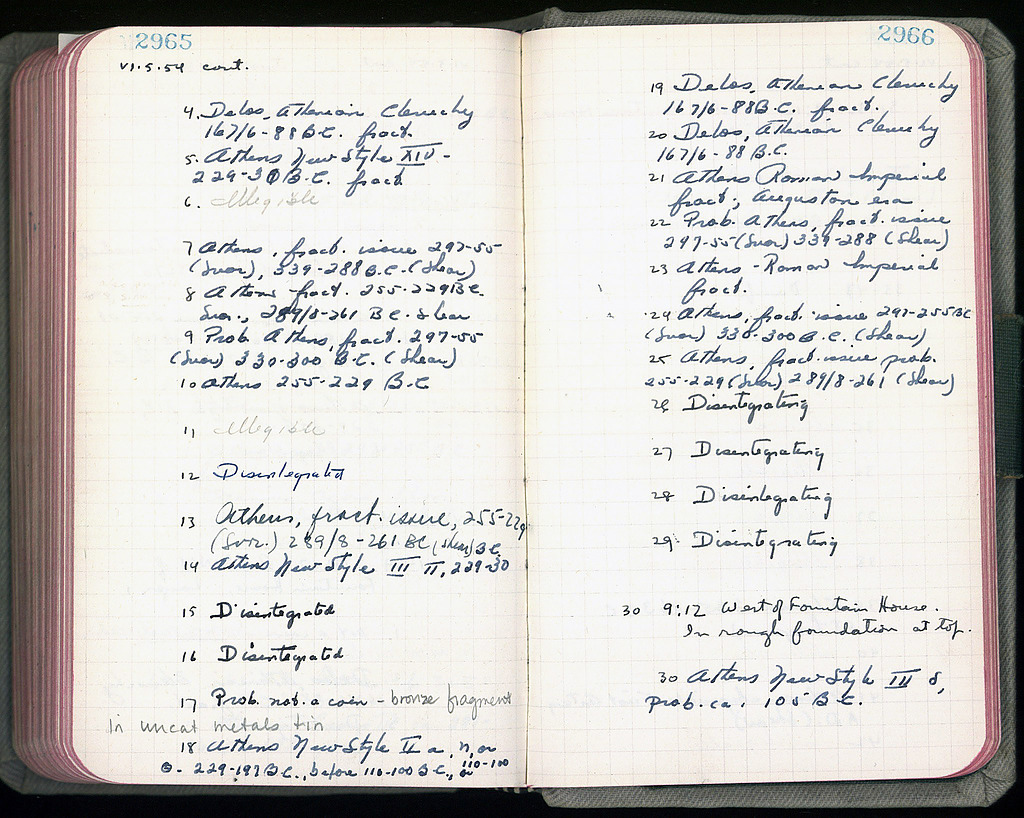 2965
VI.5.54 cont.
4. Delos, Athenian Cleruchy
167/6-88 B.C. fract.
5. Athens New Style XIV-
229-30 B.C. fract.
6. Illegible
7 Athens, fract. issue 297-55
(Svor.), 339-288 B.C. (Shear)
8 Athens fract. 255-229 B.C.
Svor., 289/8-261 B.C. Shear
9 Prob. Athens, fract. 297-55
(Svor) 330-300 B.C. (Shear)
10 Athens 255-229 B.C
11 Illegible
12 Disintegrated
13 Athens, fract. issue, 255-229
(Svor.) 289/8-261 BC (Shear) B.C.
14 Athens New Style III 229-30
15 Disintegrated
16 Disintegrated
17 Prob. not a coin - bronze fragment
In uncat metals tin
18 Athens New Style II a, n, or
229-197 B.C., before 110-100 B.C., or 110-100
2966
19 Delos, Athenian Cleruchy
167/6-88 B.C. fract.
20 Delos, Athenian Cleruchy
167/6-88 B.C.
21 Athens Roman Imperial
fract; Augustan era
22 Prob. Athens, fract. issue
297-55 (Svor) 339-288 (Shear)
23 Athens - Roman Imperial
fract.
24 Athens, fract. issue 297-255 BC
(Svor) 330-300 B.C. (Shear)
25 Athens, fract. issue prob.
255-229 (Svor) 289/8-261 (Shear)
26 Disintegrating
27 Disintegrating
28 Disintegrating
29 Disintegrating
30 9:12 West of Fountain House.
In rough foundation at top.
30 Athens New Style III
prob. ca. 105 B.C.